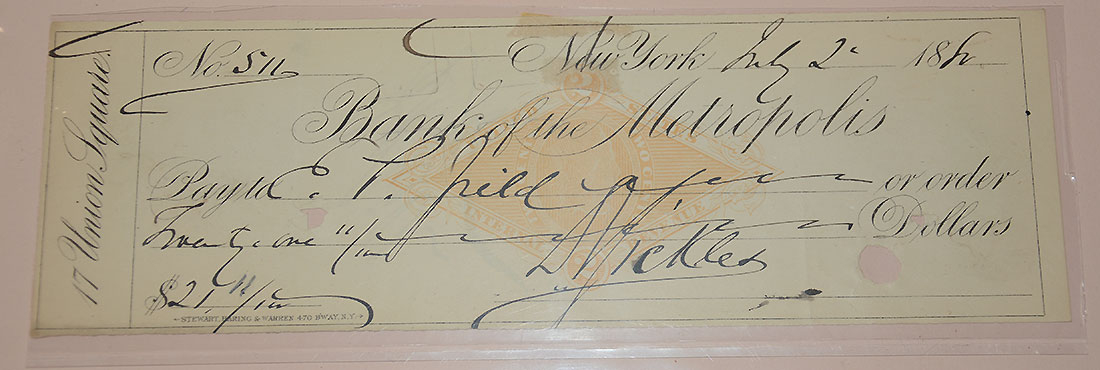 17 Union Square.
No. 511 New York July 2 188
Bank of the Metropolis
Pay to E. P. Field or order
Twenty one 11/100 Dollars
$21 11/100 D Sickles
STEWART, WARING & WARREN 470 BWAY, N.Y.